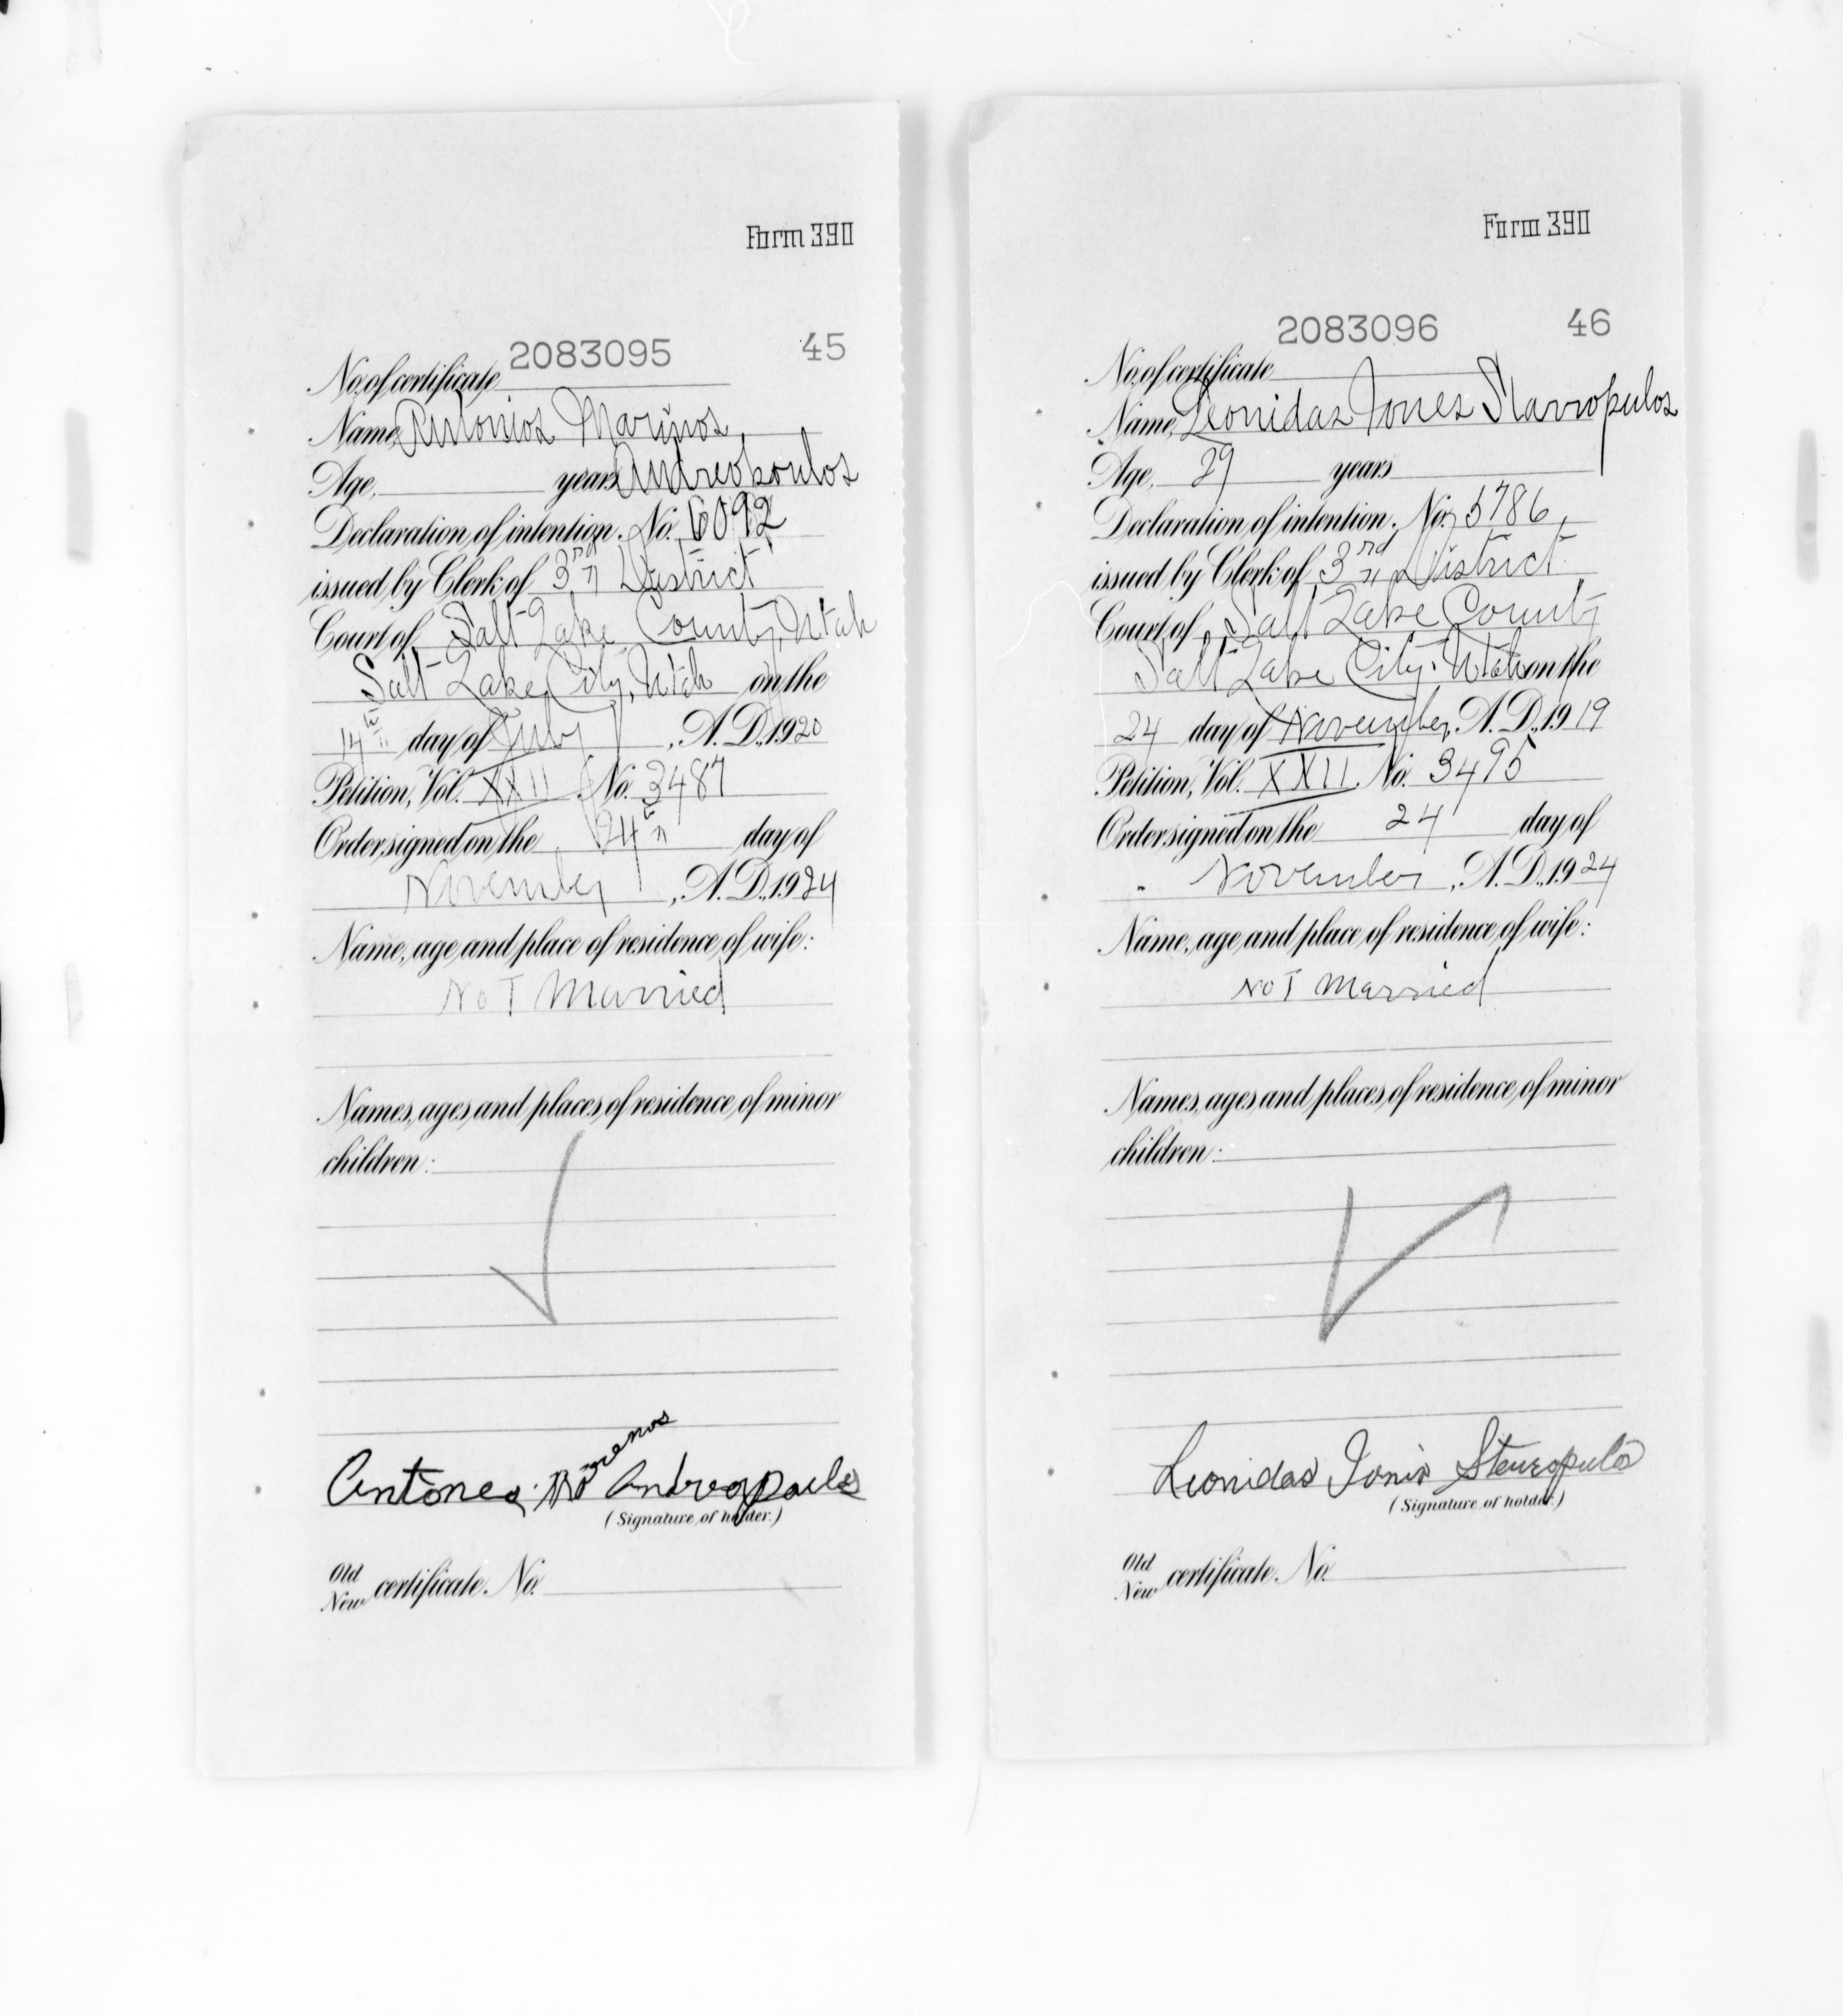 Form 390
2083095 45
No. of certificate
Name, Antonios Marinos
Age, years Andreopoulos
Declaration of intention, No. 6092
issued by Clerk of 3rd District
Court of Salt Lake County, Utah
Salt Lake City, Utah on the
14th day of July, A. D., 1920
Petition, Vol. XXII No. 3487
Order signed on the 24th day of
November, A. D., 1924
Name, age and place of residence of wife:
Not Married
Names, ages and places of residence of minor
children:
Andreopoulos
(Signature of holder.)
Old
New certificate No.
Form 390
2083096 46
No. of certificate
Name, Leonidas Jones Stavropulos
Age, 29 years
Declaration of intention, No. 5786,
issued by Clerk of 3rd District
Court of Salt Lake County
Salt Lake City, Utah on the
24 day of November, A. D., 1919
Petition, Vol. XXII. No. 3495
Order signed on the 24 day of
November, A. D., 1924
Name, age and place of residence of wife:
Not Married
Names, ages and places of residence of minor
children:
Leonidas
(Signature of holder.)
Old
New certificate No.